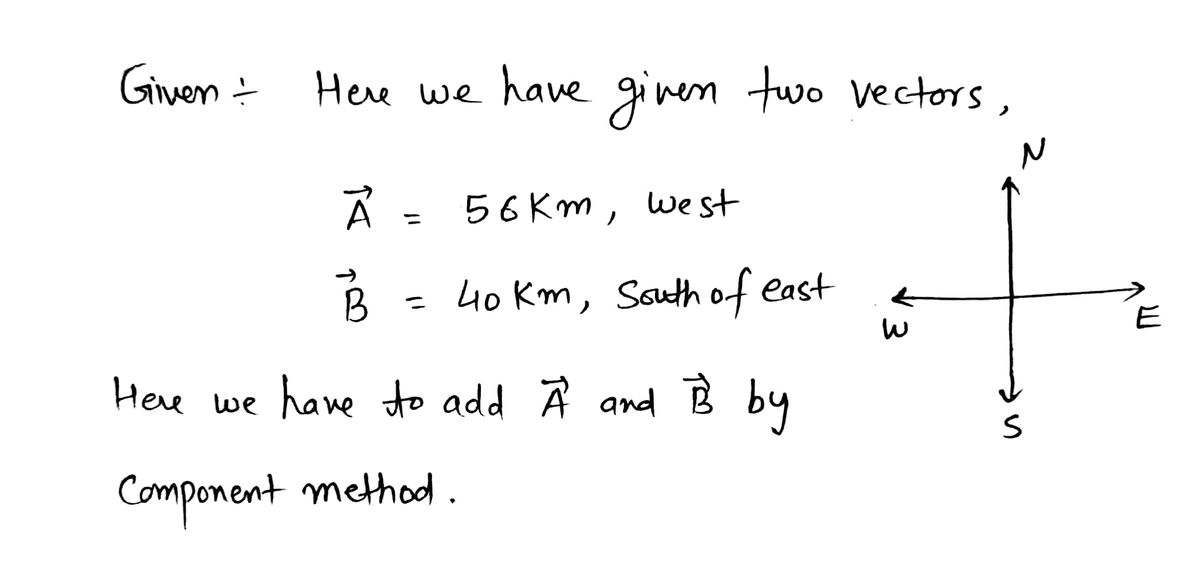 Given ÷ Here we have given two vectors,
N
A⃗ = 56 Km, west
B⃗ = 40 Km, South of east
W
E
Here we have to add A⃗ and B⃗ by
S
Component method.